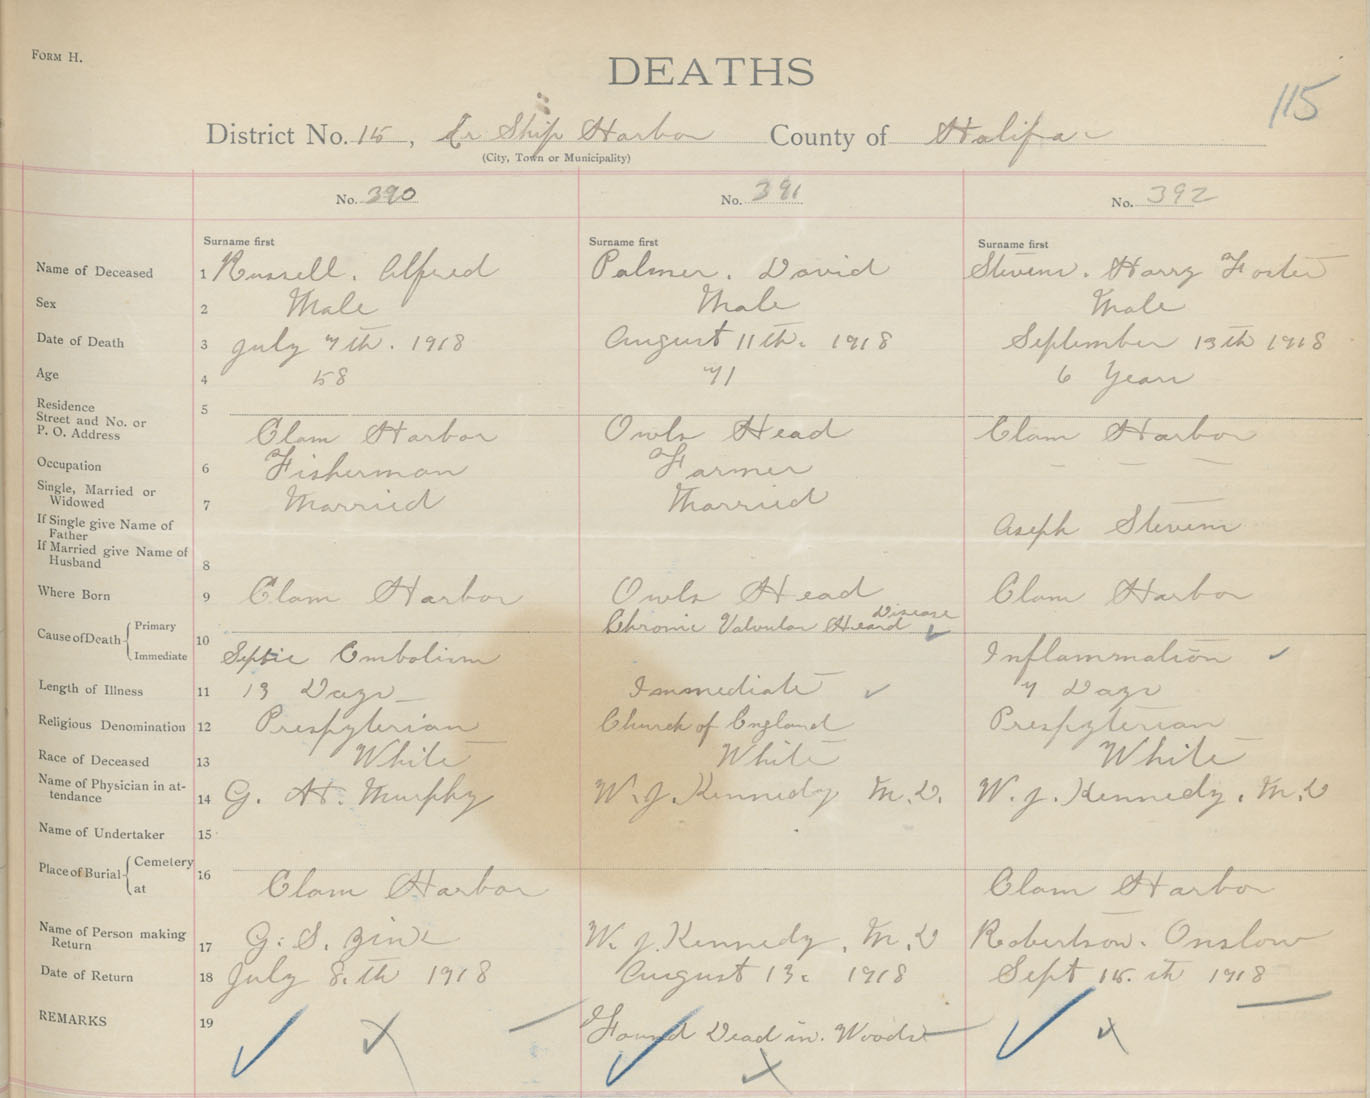 FORM H.
DEATHS
115
District No. 15, Lr Ship Harbor County of Halifax
(City, Town or Municipality)
No. 390 No. 391 No. 392
Surname first Surname first Surname first
Name of Deceased 1 Russell. Alfred Palmer. David Stevens. Harry Foster
Sex 2 Male Male Male
Date of Death 3 July 7th. 1918 August 11th. 1918 September 13th 1918
Age 4 58 71 6 Years
Residence
Street and No. or
P. O. Address 5 Clam Harbor Owls Head Clam Harbor
Occupation 6 Fisherman Farmer — — —
Single, Married or
Widowed 7 Married Married
If Single give Name of
Father Stevens
If Married give Name of
Husband 8
Where Born 9 Clam Harbor Owls Head Clam Harbor
Cause of Death Primary Chronic Valvular Heard Disease
Immediate 10 Septic Embolism Inflammation
Length of Illness 11 13 Days Immediate 7 Days
Religious Denomination 12 Presbyterian Church of England Presbyterian
Race of Deceased 13 White White White
Name of Physician in at-
tendance 14 G. H. Murphy W. J. Kennedy M.D. W. J. Kennedy. M.D
Name of Undertaker 15
Place of Burial Cemetery
at 16 Clam Harbor Clam Harbor
Name of Person making
Return 17 G. S. W. J. Kennedy, M.D Robertson. Onslow
Date of Return 18 July 8.th 1918 August 13. 1918 Sept 15.th 1918
REMARKS 19 Found Dead in. Woods